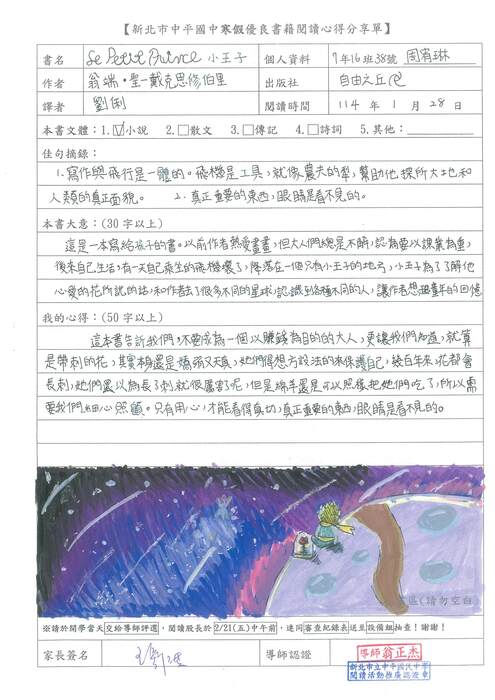 【新北市中平國中寒假優良書籍閱讀心得分享單】
書名 Le Petit Prince 小王子 個人資料 7年16班38號 周宥琳
作者 翁端·聖-戴克思修伯里 出版社 自由之丘
譯者 劉俐 閱讀時間 114年 1月 28日
本書文體：1.☑小說 2.□散文 3.□傳記 4.□詩詞 5.其他：
佳句摘錄：
1.寫作與飛行是一體的。飛機是工具，就像農夫的犁，幫助他探所大地和
人類的真正面貌。 2.真正重要的東西，眼睛是看不見的。
本書大意：(30 字以上)
這是一本寫給孩子的書。以前作者熱受畫畫，但大人們總是不解，認為要以課業為重，
後來自己生活，有一天自己乘坐的飛機壞了，降落在一個只有小王子的地方，小王子為了了解他
心愛的花所說的話，和作者去了很多不同的星球，認識到各種不同的人，讓作者想起童年的回憶
我的心得：(50 字以上)
這本書告訴我們，不要成為一個以賺錢為目的的大人，更讓我們知道，就算
是帶刺的花，其實本身還是嬌弱又天真，她們得想方設法的來保護自己，幾百年來，花都會
長刺，她們還以為長了刺就很厲害了呢，但是綿羊還是可以照樣把他們吃了，所以需
要我們細心照顧。只有用心，才能看得真切，真正重要的東西，眼睛是看不見的。
區(請勿空白)
※請於開學當天交給導師評選，閱讀股長於 2/21(五)中午前，連同審查紀錄表送至設備組抽查！謝謝！
家長簽名 導師認證 導師翁正杰
新北市立中平國民中學
閱讀活動推廣認證章